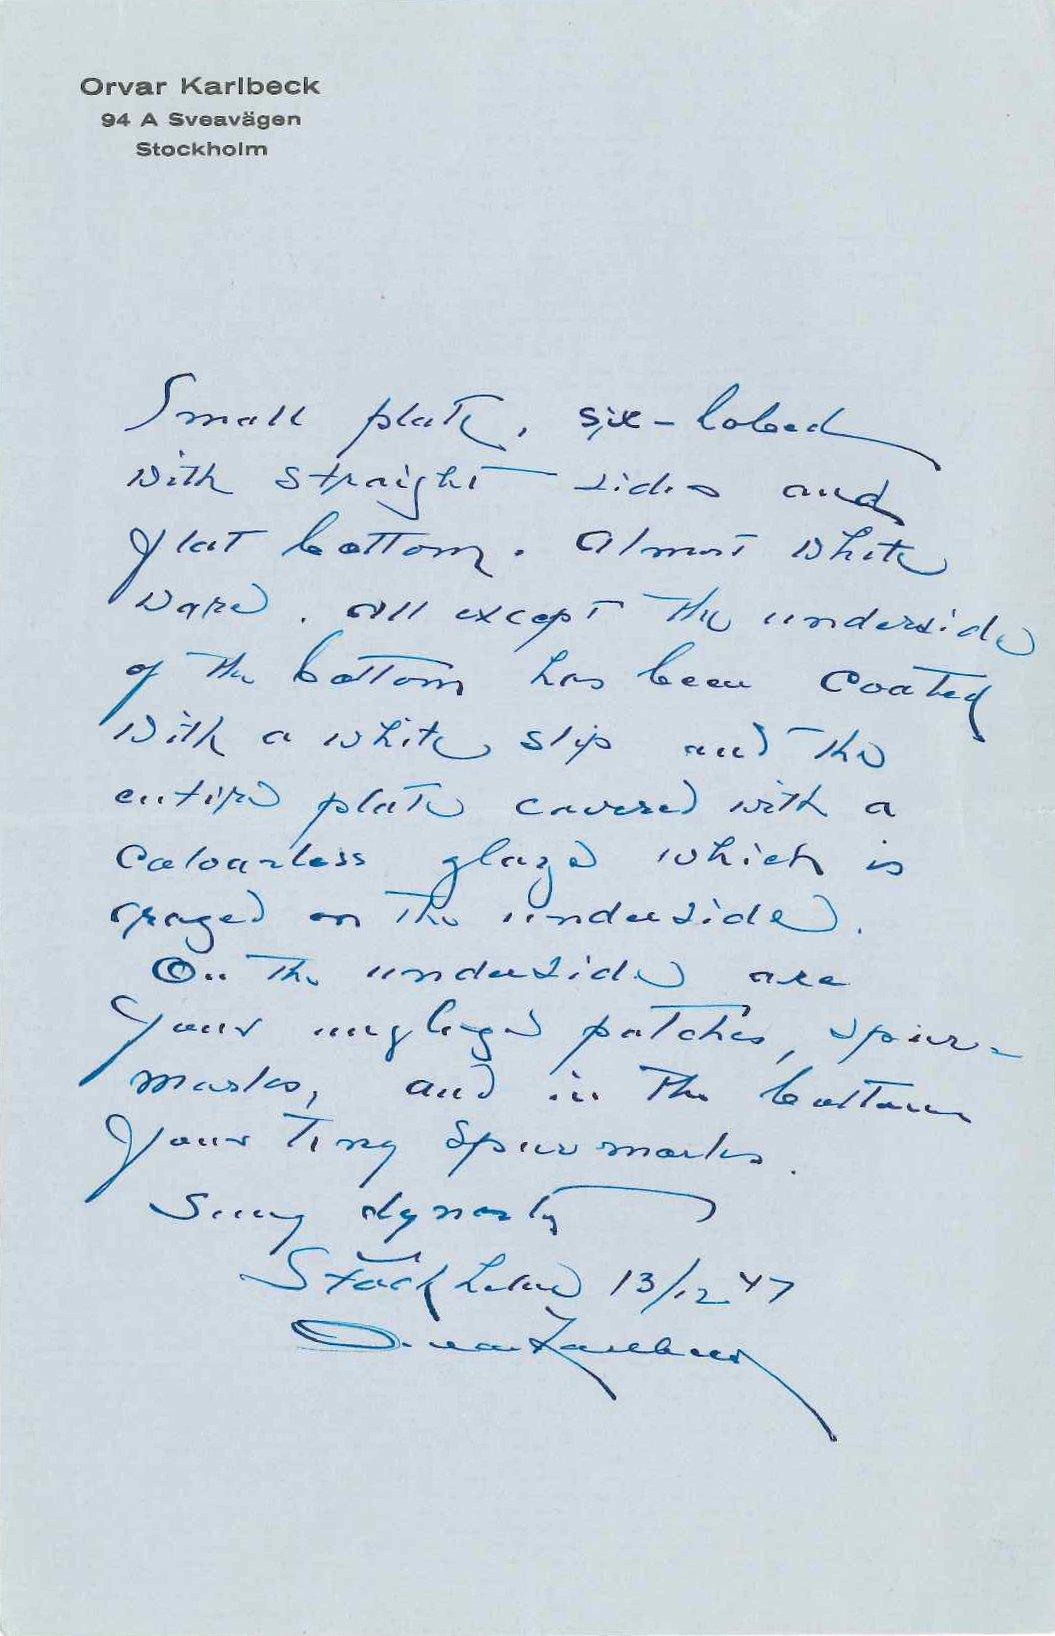 Orvar Karlbeck
94 A Sveavägen
Stockholm
Small plate, six-lobed
with straight sides and
flat bottom. Almost white
ware. All except the underside
of the bottom has been coated
with a white slip and the
entire plate covered with a
colourless glaze which is
crazed on the underside.
On the underside are
four unglazed patches, spur-
marks, and in the bottom
four tiny spur marks.
Sung dynasty
Stockholm 13/12 47
Orvar Karlbeck